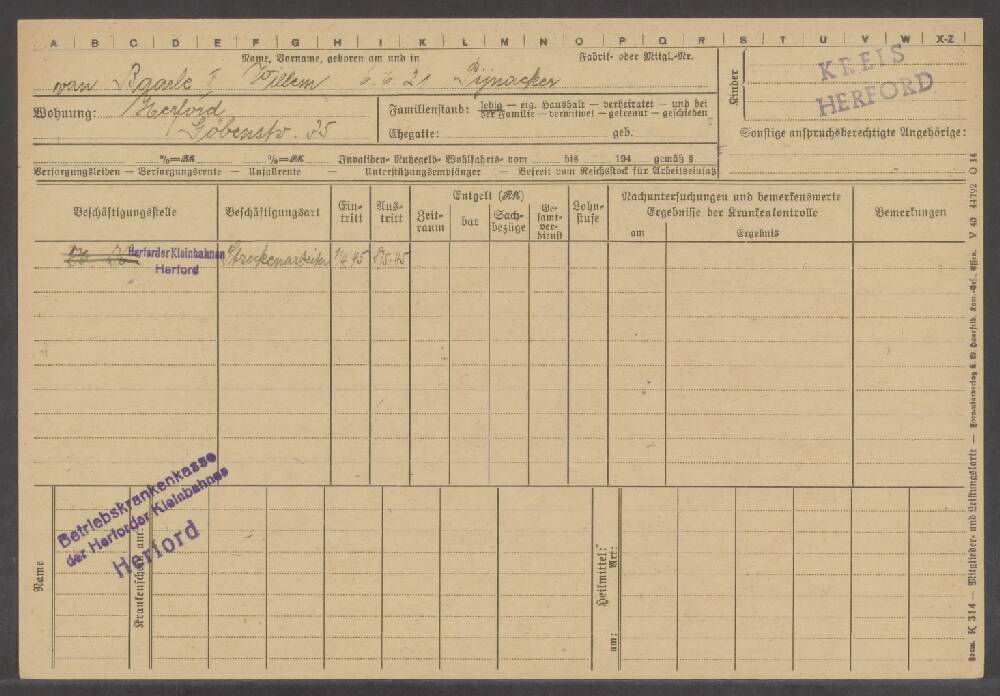 A B C D E F G H I K L M N O P Q R S T U V W X-Z
Name, Vorname, geboren am und in
Fabrik- oder Mitgl.-Nr.
van Baarle I Willem 6.6.21 Pijnacker
Kinder
KREIS
HERFORD
Wohnung: Herford
Göbenstr. 35
Familienstand: ledig — eig. Haushalt — verheiratet — und bei
der Familie — verwitwet — getrennt — geschieden
Ehegatte: geb.
Sonstige anspruchsberechtigte Angehörige:
%=RK %=RK Invaliden- Ruhegeld- Wohlfahrts- vom bis 194 gemäß §
Versorgungsleiden — Versorgungsrente — Unfallrente — Unterstützungsempfänger — Befreit vom Reichsstock für Arbeitseinsatz
Beschäftigungsstelle
Beschäftigungsart
Ein-
tritt
Aus-
tritt
Entgelt (RK)
Zeit-
raum
bar
Sach-
bezüge
Ge-
samt-
ver-
dienst
Lohn-
stufe
Nachuntersuchungen und bemerkenswerte
Ergebnisse der Krankenkontrolle
am Ergebnis
Bemerkungen
Herforder Kleinbahnen
Herford
Streckenarbeiter 1/4.45 8/5.45
Betriebskrankenkasse
der Herforder Kleinbahnen
Herford
Name
Krankenschein am:
Heilmittel:
Art:
am:
K 314 — Mitglieder- und Leistungskarte —
V 43 44792 O 14